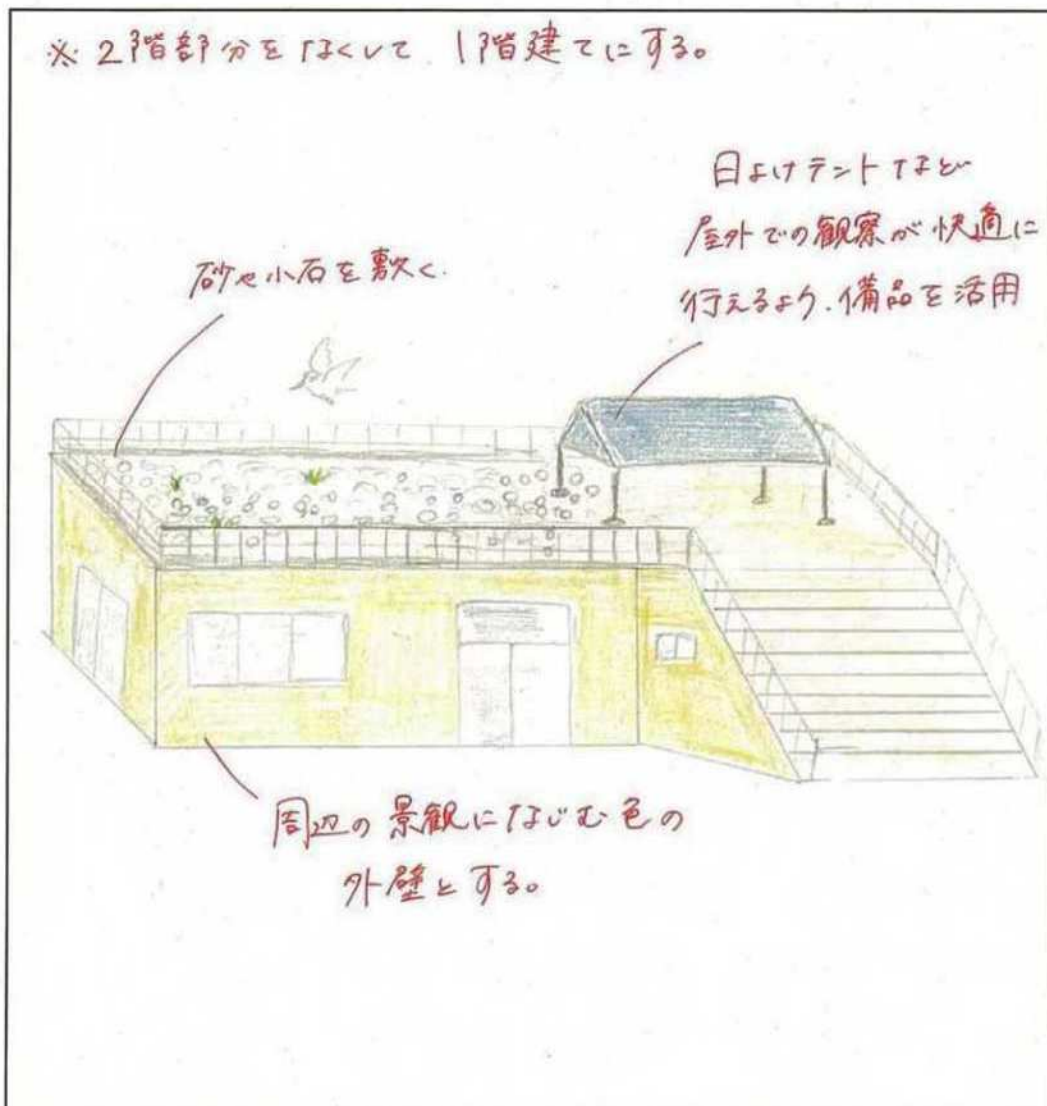 ※ 2階部分をなくして、1階建てにする。
日よけテントなど
屋外での観察が快適に
行えるよう、備品を活用
砂や小石を敷く。
周辺の景観になじむ色の
外壁とする。